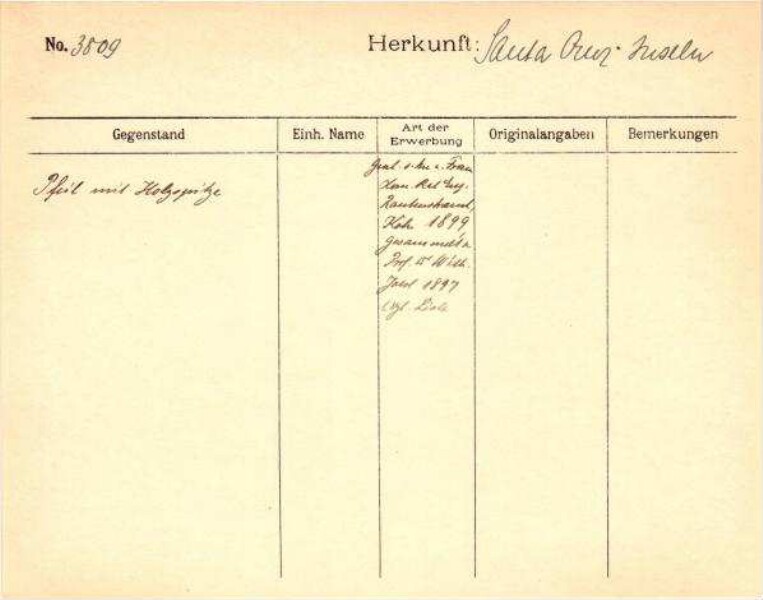 No. 3809 Herkunft: Santa Cruz-Inseln
Gegenstand Einh. Name Art der Erwerbung Originalangaben Bemerkungen
Pfeil mit Holzspitze
Frau
Rautenstrauch,
1899
gesammelt v.
Prof. Dr Wilh.
Joest 1897